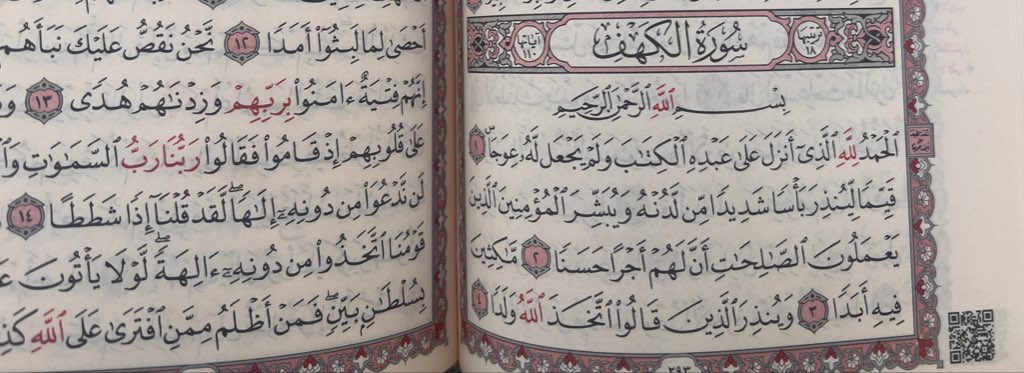 ترتيبها ١٨ سُورَةُ الكَهْفِ آياتها ١١٠
بِسْمِ ٱللَّهِ ٱلرَّحْمَٰنِ ٱلرَّحِيمِ
ٱلْحَمْدُ لِلَّهِ ٱلَّذِىٓ أَنزَلَ عَلَىٰ عَبْدِهِ ٱلْكِتَٰبَ وَلَمْ يَجْعَل لَّهُۥ عِوَجَاۜ ١
قَيِّمًا لِّيُنذِرَ بَأْسًا شَدِيدًا مِّن لَّدُنْهُ وَيُبَشِّرَ ٱلْمُؤْمِنِينَ ٱلَّذِينَ
يَعْمَلُونَ ٱلصَّٰلِحَٰتِ أَنَّ لَهُمْ أَجْرًا حَسَنًا ٢ مَّٰكِثِينَ
فِيهِ أَبَدًا ٣ وَيُنذِرَ ٱلَّذِينَ قَالُوا۟ ٱتَّخَذَ ٱللَّهُ وَلَدًا ٤
٢٩٣
أَحْصَىٰ لِمَا لَبِثُوٓا۟ أَمَدًا ١٢ نَّحْنُ نَقُصُّ عَلَيْكَ نَبَأَهُم
إِنَّهُمْ فِتْيَةٌ ءَامَنُوا۟ بِرَبِّهِمْ وَزِدْنَٰهُمْ هُدًى ١٣
عَلَىٰ قُلُوبِهِمْ إِذْ قَامُوا۟ فَقَالُوا۟ رَبُّنَا رَبُّ ٱلسَّمَٰوَٰتِ
لَن نَّدْعُوَا۟ مِن دُونِهِۦٓ إِلَٰهًا ۖ لَّقَدْ قُلْنَآ إِذًا شَطَطًا ١٤
قَوْمُنَا ٱتَّخَذُوا۟ مِن دُونِهِۦٓ ءَالِهَةً ۖ لَّوْلَا يَأْتُونَ
بِسُلْطَٰنٍۭ بَيِّنٍ ۖ فَمَنْ أَظْلَمُ مِمَّنِ ٱفْتَرَىٰ عَلَى ٱللَّهِ